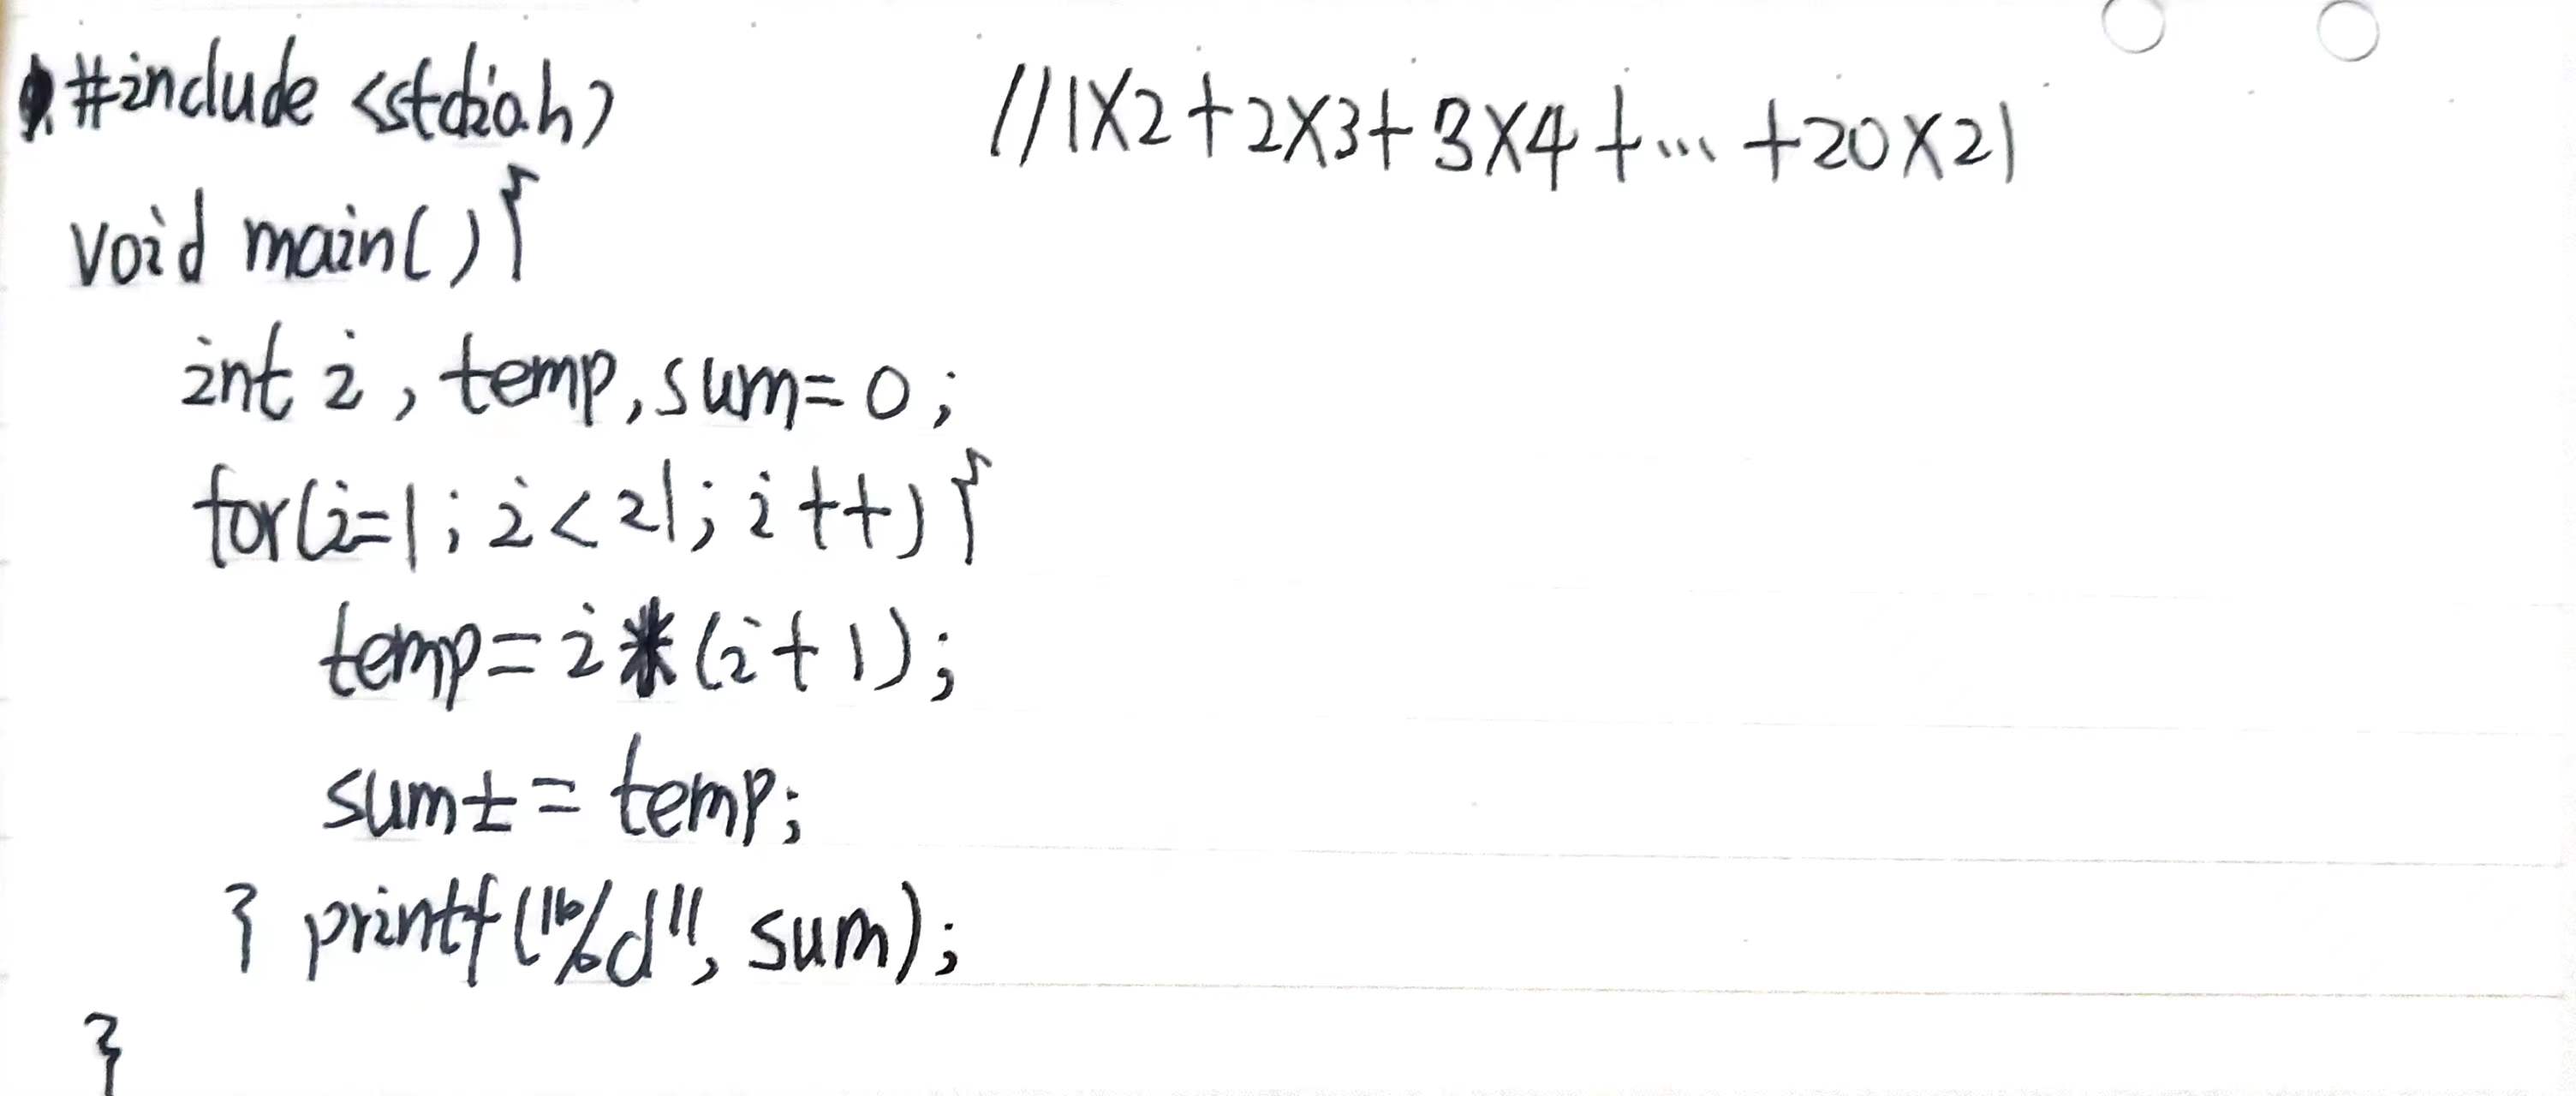 #include <stdio.h> //1X2+2X3+3X4+...+20X21
void main(){
int i, temp, sum=0;
for(i=1; i<21; i++){
temp=i*(i+1);
sum±=temp;
} printf("%d", sum);
}